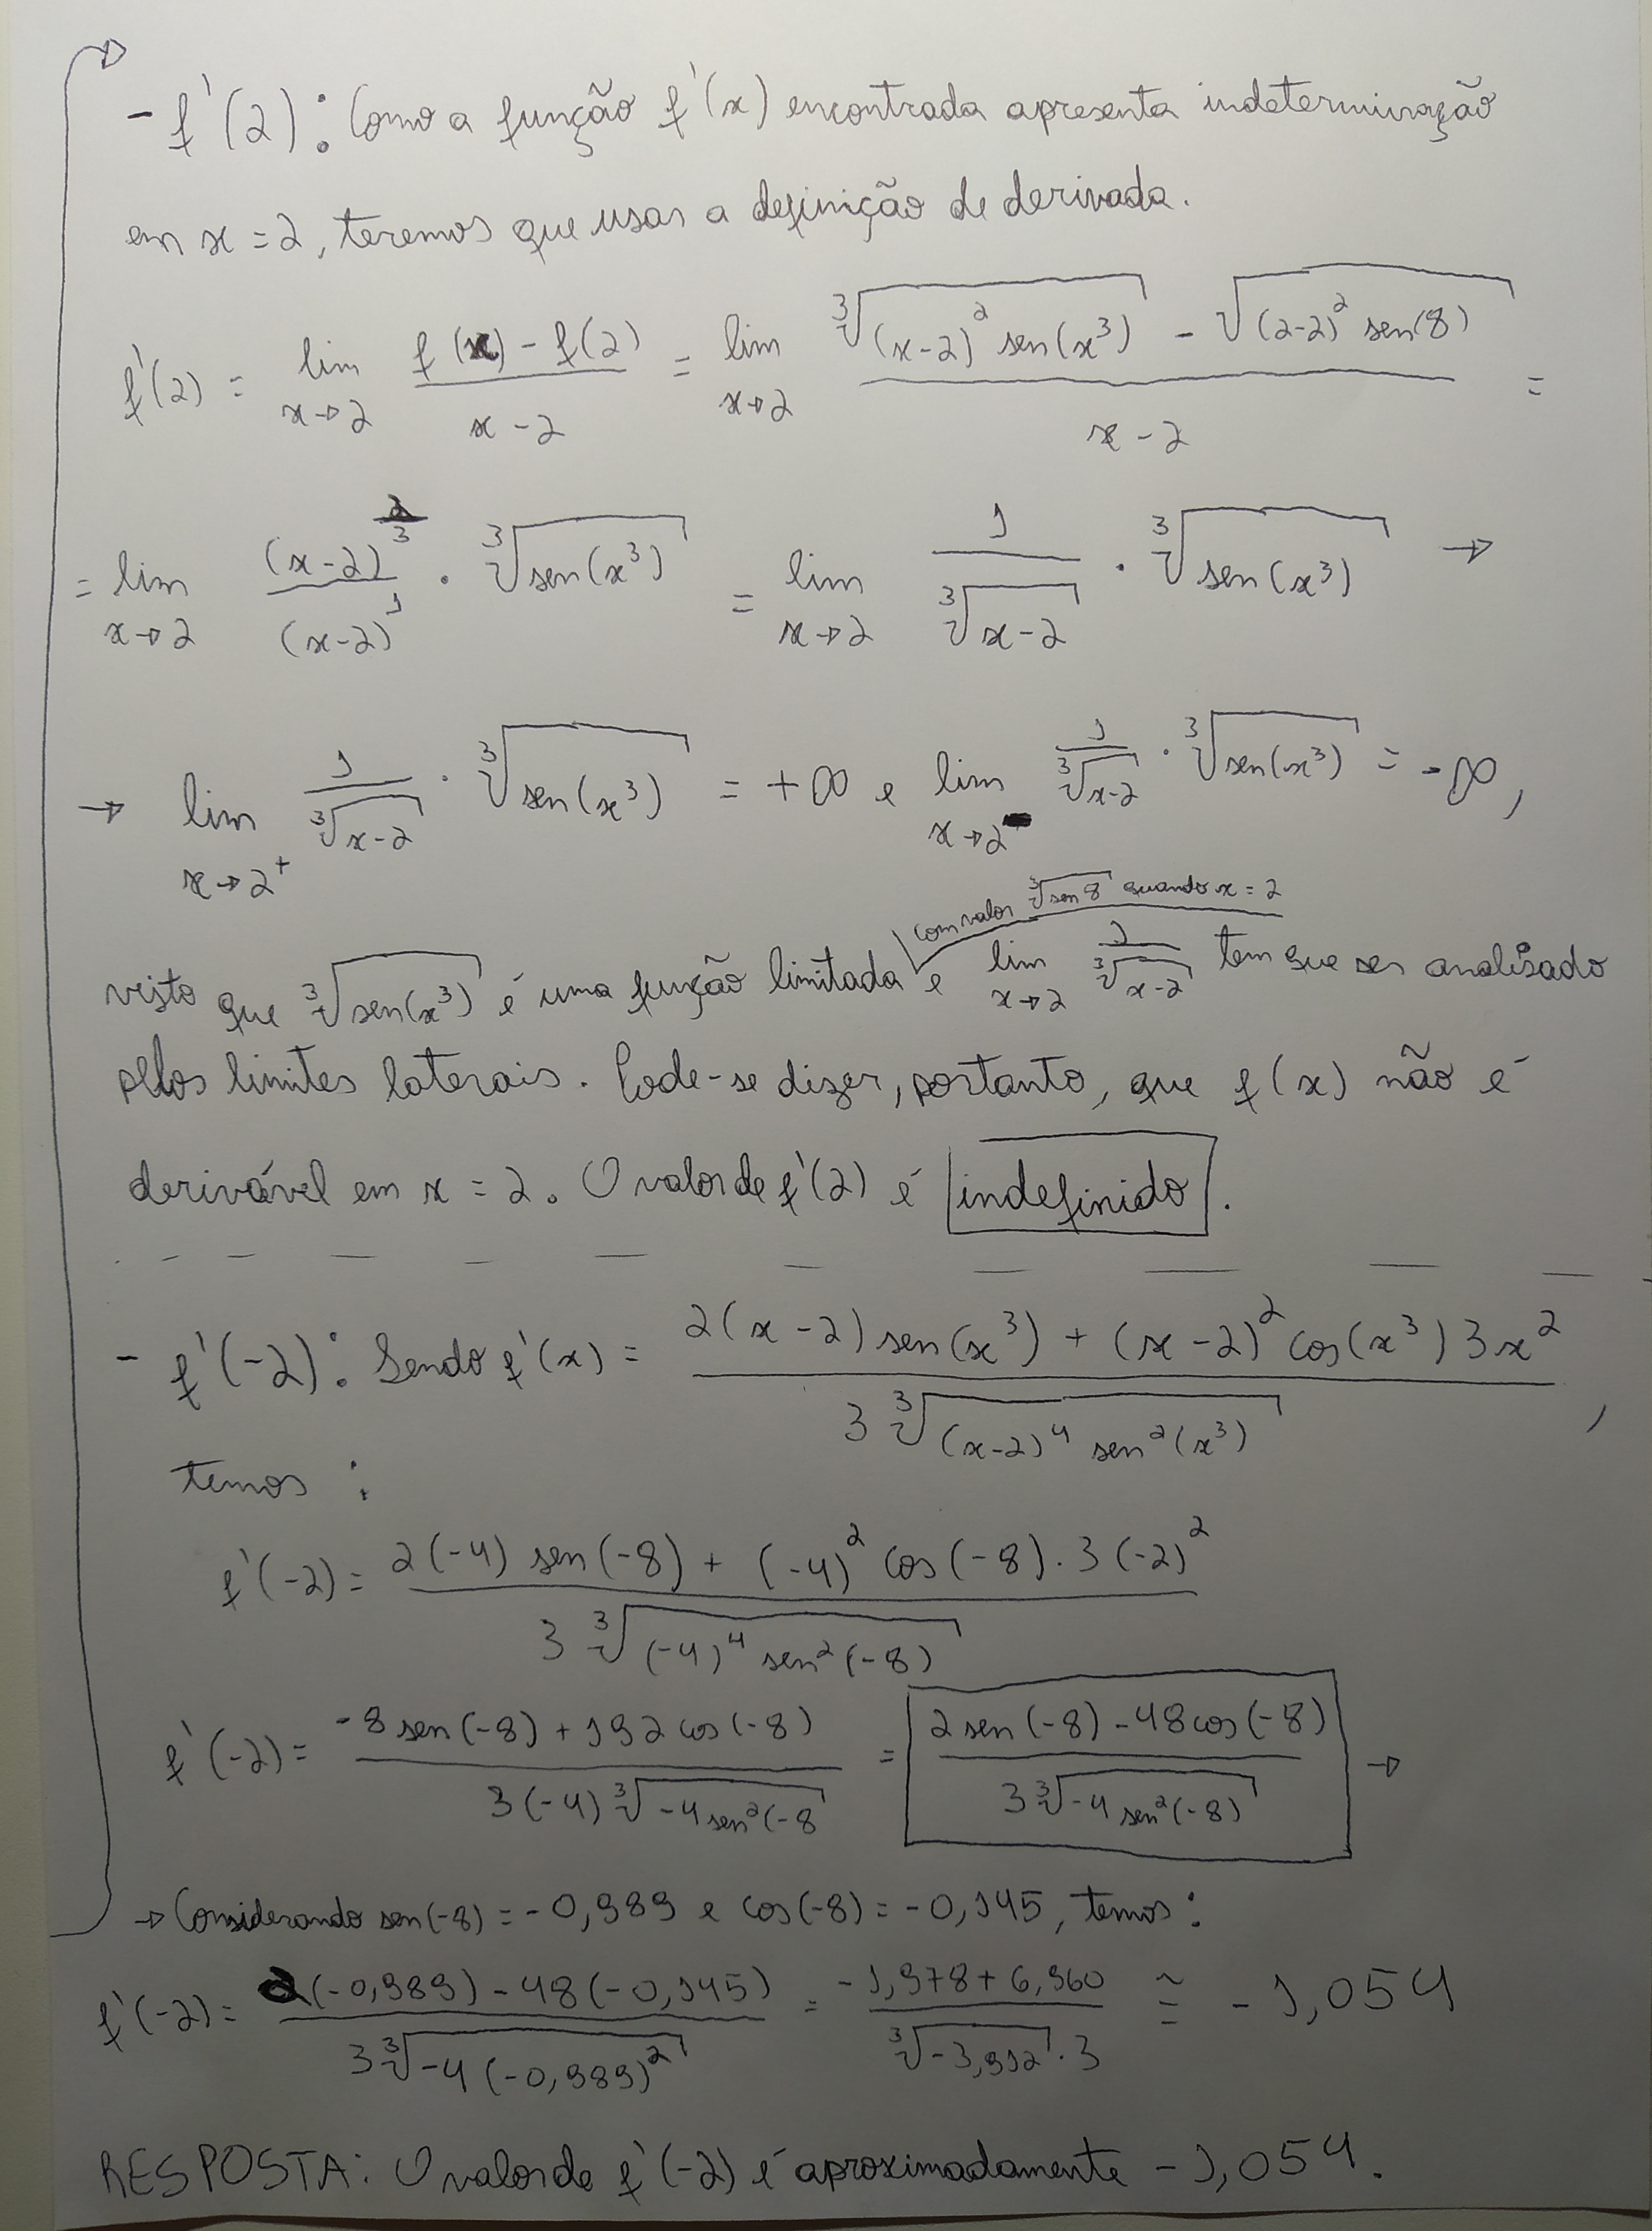 - f'(2): Como a função f'(x) encontrada apresenta indeterminação
em x = 2, teremos que usar a definição de derivada.
f'(2) = lim x→2 (f(x) - f(2))/(x - 2) = lim x→2 (∛((x-2)² sen(x³)) - √((2-2)² sen(8)))/(x - 2) =
= lim x→2 (x-2)^(2/3)/(x-2)^1 · ∛(sen(x³)) = lim x→2 1/∛(x-2) · ∛(sen(x³)) →
→ lim x→2⁺ 1/∛(x-2) · ∛(sen(x³)) = +∞ e lim x→2⁻ 1/∛(x-2) · ∛(sen(x³)) = -∞,
com valor ∛(sen 8) quando x = 2
visto que ∛(sen(x³)) é uma função limitada e lim x→2 1/∛(x-2) tem que ser analisado
pelos limites laterais. Pode-se dizer, portanto, que f(x) não é
derivável em x = 2. O valor de f'(2) é indefinido.
- f'(-2): Sendo f'(x) = (2(x-2) sen(x³) + (x-2)² cos(x³) 3x²)/(3 ∛((x-2)⁴ sen²(x³))),
temos:
f'(-2) = (2(-4) sen(-8) + (-4)² cos(-8) · 3(-2)²)/(3 ∛((-4)⁴ sen²(-8)))
f'(-2) = (-8 sen(-8) + 192 cos(-8))/(3(-4) ∛(-4 sen²(-8)) = (2 sen(-8) - 48 cos(-8))/(3 ∛(-4 sen²(-8))) →
→ Considerando sen(-8) = -0,989 e cos(-8) = -0,145, temos:
f'(-2) = (2(-0,989) - 48(-0,145))/(3 ∛(-4(-0,989)²)) = (-1,978 + 6,960)/(∛(-3,912) · 3) ≅ -1,054
RESPOSTA: O valor de f'(-2) é aproximadamente -1,054.